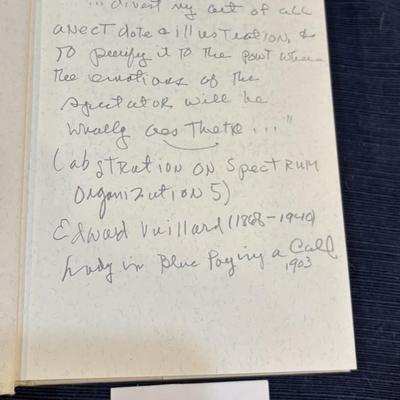 "...divest my art of all
anecdote & illustration, &
to purify it to the point where
the emotions of the
spectator will be
wholly aesthetic..."
(abstration on Spectrum
Organization 5)
Edward Vuillard (1868-1940)
Lady in Blue Paying a Call
1903